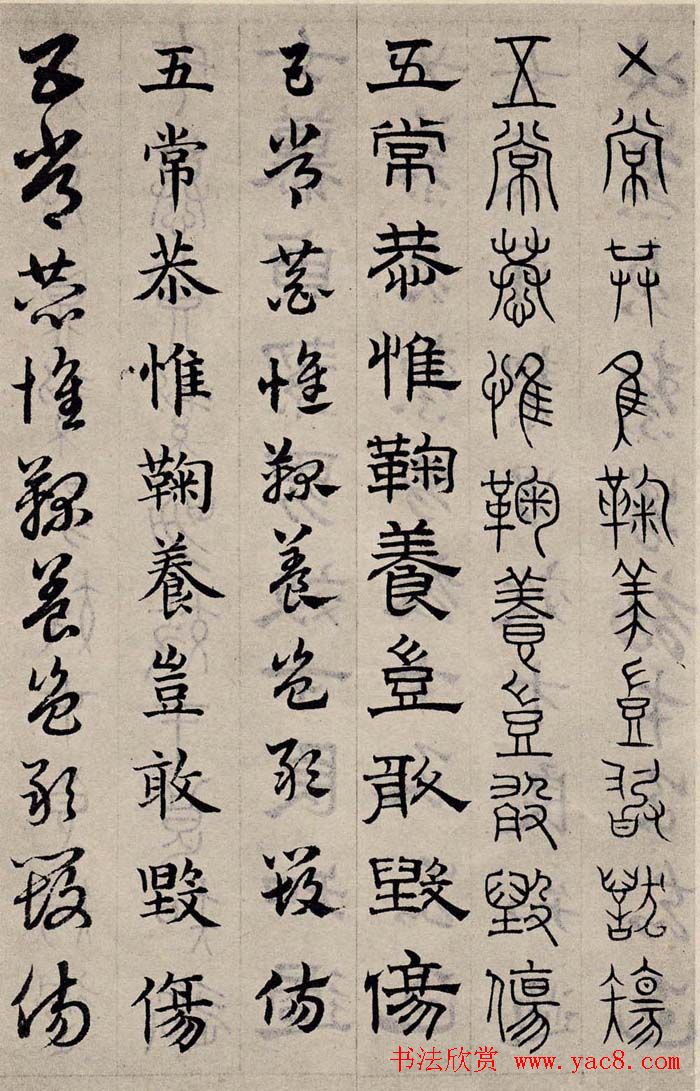 五常恭惟鞠養豈敢毀傷
五常恭惟鞠養豈敢毀傷
五常恭惟鞠養豈敢毀傷
五常恭惟鞠養豈敢毀傷
五常恭惟鞠養豈敢毀傷
五常恭惟鞠養豈敢毀傷
书法欣赏 www.yac8.com